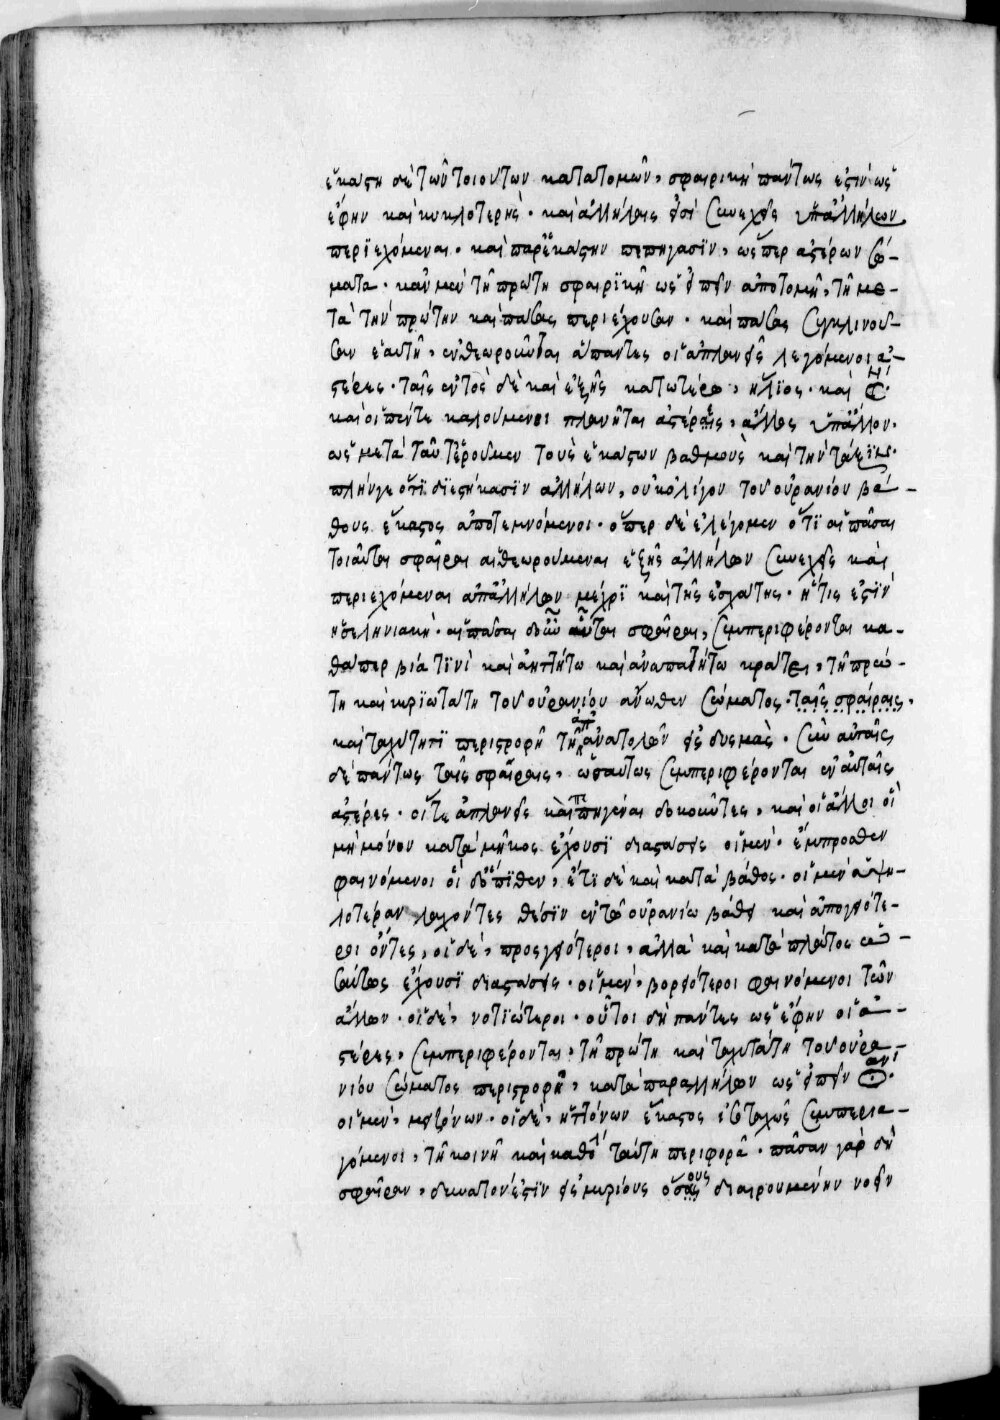 ἑκάστη δὲ τῶν τοιούτων κατατομῶν, σφαιρικὴ πάντως ἐστὶν ὡς
ἔφην καὶ κυκλοτερής· καὶ ἀλλήλαις εἰσὶ συνεχεῖς ὑπαλλήλων
περϊεχόμεναι· καὶ παρ' ἑκάστην πεπήγασϊν, ὥσπερ ἀστέρων σώ-
ματα· κἀν μὲν τῆ πρώτη σφαιρϊκῆ ὡς εἰπεῖν ἀποτομῆ, τῆ με-
τὰ τὴν πρώτην καὶ πάσας περιέχουσαν· καὶ πάσας συγκλινου-
σαν ἑαυτῆ, ἐνθεωροῦνται ἅπαντες οἱ ἀπλανεῖς λεγόμενοι ἀ-
στέρες· ταῖς ἐντὸς δὲ καὶ ἑξῆς κατωτέρω, ἥλϊος· καὶ
καὶ οἱ πέντε καλούμενοι πλανῆται ἀστέρες, ἄλλος ὑπ' ἄλλον·
ὡς μετὰ ταῦτ' ἐροῦμεν τοὺς ἑκάστων βαθμοὺς καὶ τὴν τάξϊν·
πλήν γε ὅτϊ διεστήκασϊν ἀλλήλων, οὐκ ὀλίγον τοῦ οὐρανίου βά-
θους ἕκαστος ἀποτεμνόμενοι· ὅπερ δὲ ἐλέγομεν ὅτϊ αἱ πᾶσαι
τοιαῦται σφαῖραι αἱ θεωρούμεναι ἑξῆς ἀλλήλων συνεχεῖς καὶ
περιεχόμεναι ἀπ' ἀλλήλων μέχρϊ καὶ τῆς ἐσχάτης· ἥτις ἐστϊν
ἡ σεληνιακή· αἱ πᾶσαι δ' οὖν αὗται σφαῖραι, συμπεριφέρονται κα-
θάπερ βία τϊνὶ καὶ ἀηττήτω καὶ ἀναπαντήτω κράτει, τῆ πρώ-
τη καὶ κυρϊωτάτη τοῦ οὐρανίου ἄνωθεν σώματος· ταῖς σφαίραις,
καὶ ταχυτήτϊ περιστροφῆ τῆ ἀπ' ἀνατολῶν εἰς δυσμάς· σὺν αὐταῖς
δὲ πάντως ταῖς σφαίραις, ὡσαύτως συμπεριφέρονται ἐν αὐταῖς
ἀστέρες· οἵ τε ἀπλανεῖς καὶ πεπηγέναι δοκοῦντες, καὶ οἱ ἄλλοι οἳ
μὴ μόνον κατὰ μῆκος ἔχουσϊ διαστάσεις οἱ μὲν· ἔμπροσθεν
φαινόμενοι οἱ δ' ὄπϊθεν, ἔτϊ δὲ καὶ κατὰ βάθος· οἱ μὲν ὑψη-
λοτέραν λαχόντες θέσϊν ἐν τῶ οὐρανίω βάθει καὶ ἀπογειότε-
ροι ὄντες, οἱ δέ, προσγειότεροι, ἀλλὰ καὶ κατὰ πλάτος ὡ-
σαύτως ἔχουσϊ διαστάσεις· οἱ μὲν, βορειότεροι φαινόμενοι τῶν
ἄλλων· οἱ δὲ, νοτϊώτεροι· οὗτοι δὴ πάντες ὡς ἔφην οἱ ἀ-
στέρες, συμπεριφέρονται, τῆ πρώτη καὶ ταχυτάτη τοῦ οὐρα-
νίου σώματος περιστροφῆ, κατὰ παραλλήλων ὡς εἰπεῖν
οἱ μὲν, μειζόνων· οἱ δέ, ἡττόνων ἕκαστος εὐταχῶς συμπερια-
γόμενοι, τῆ κοινῆ καὶ καθόλου ταύτη περιφορᾶ· πᾶσαν γὰρ δὴ
σφαῖραν, δυνατόν ἐστϊν εἰς μυρίους ὅσους διαιρουμένην νοεῖν